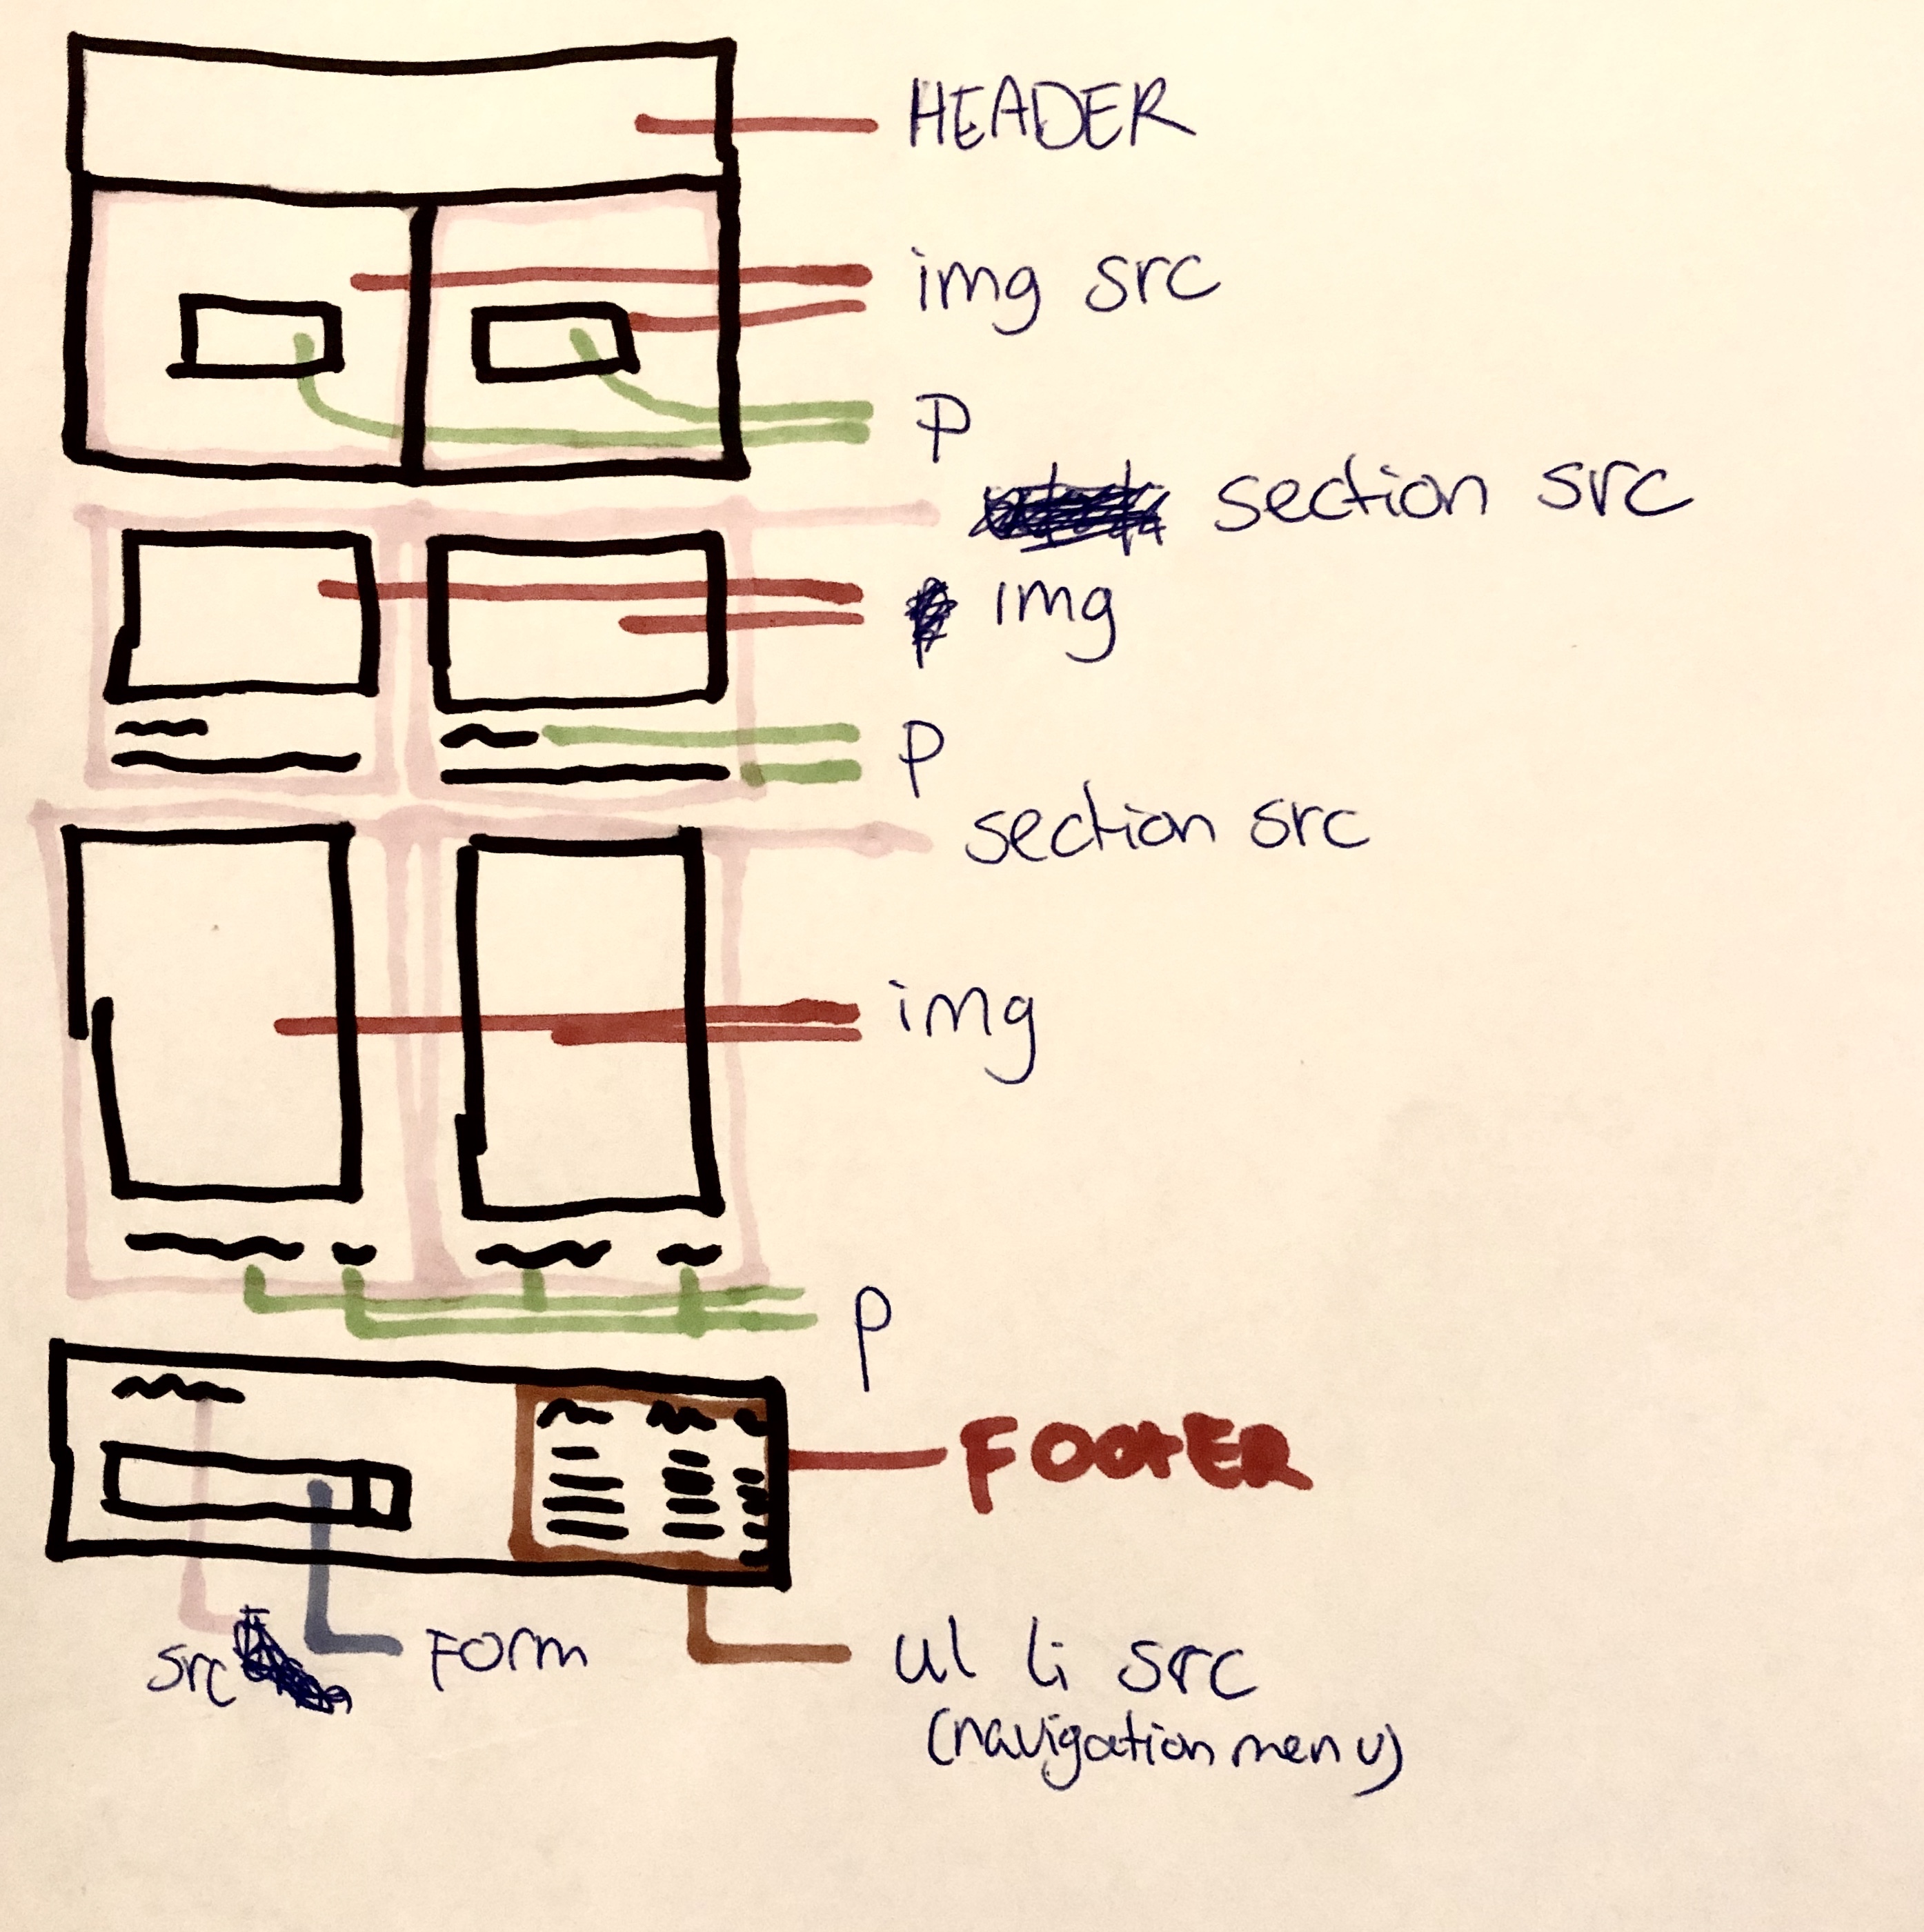 HEADER
img src
p
section src
img
p
section src
img
p
FOOTER
src
FORM
ul li src
(navigation menu)